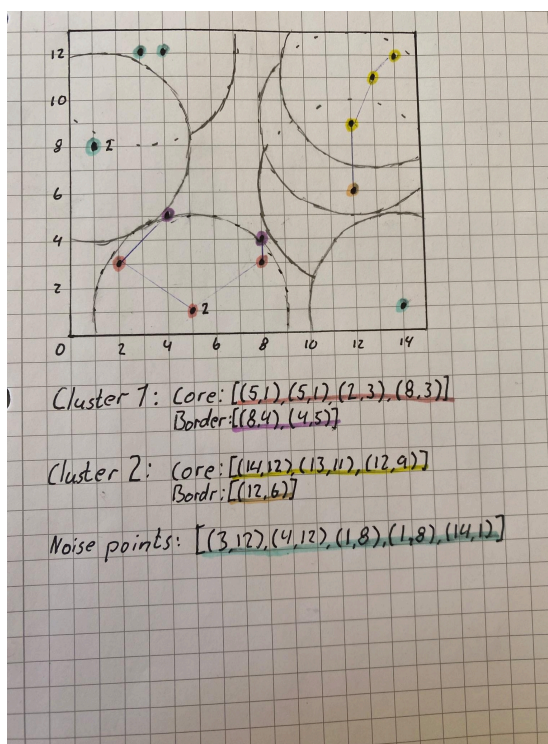 12
10
8
6
4
2
0
2
2
2 4 6 8 10 12 14
Cluster 1: Core: [(5,1), (5,1), (2,3), (8,3)]
Border: [(8,4), (4,5)]
Cluster 2: Core: [(14,12), (13,11), (12,9)]
Bordr: [(12,6)]
Noise points: [(3,12), (4,12), (1,8), (1,8), (14,1)]